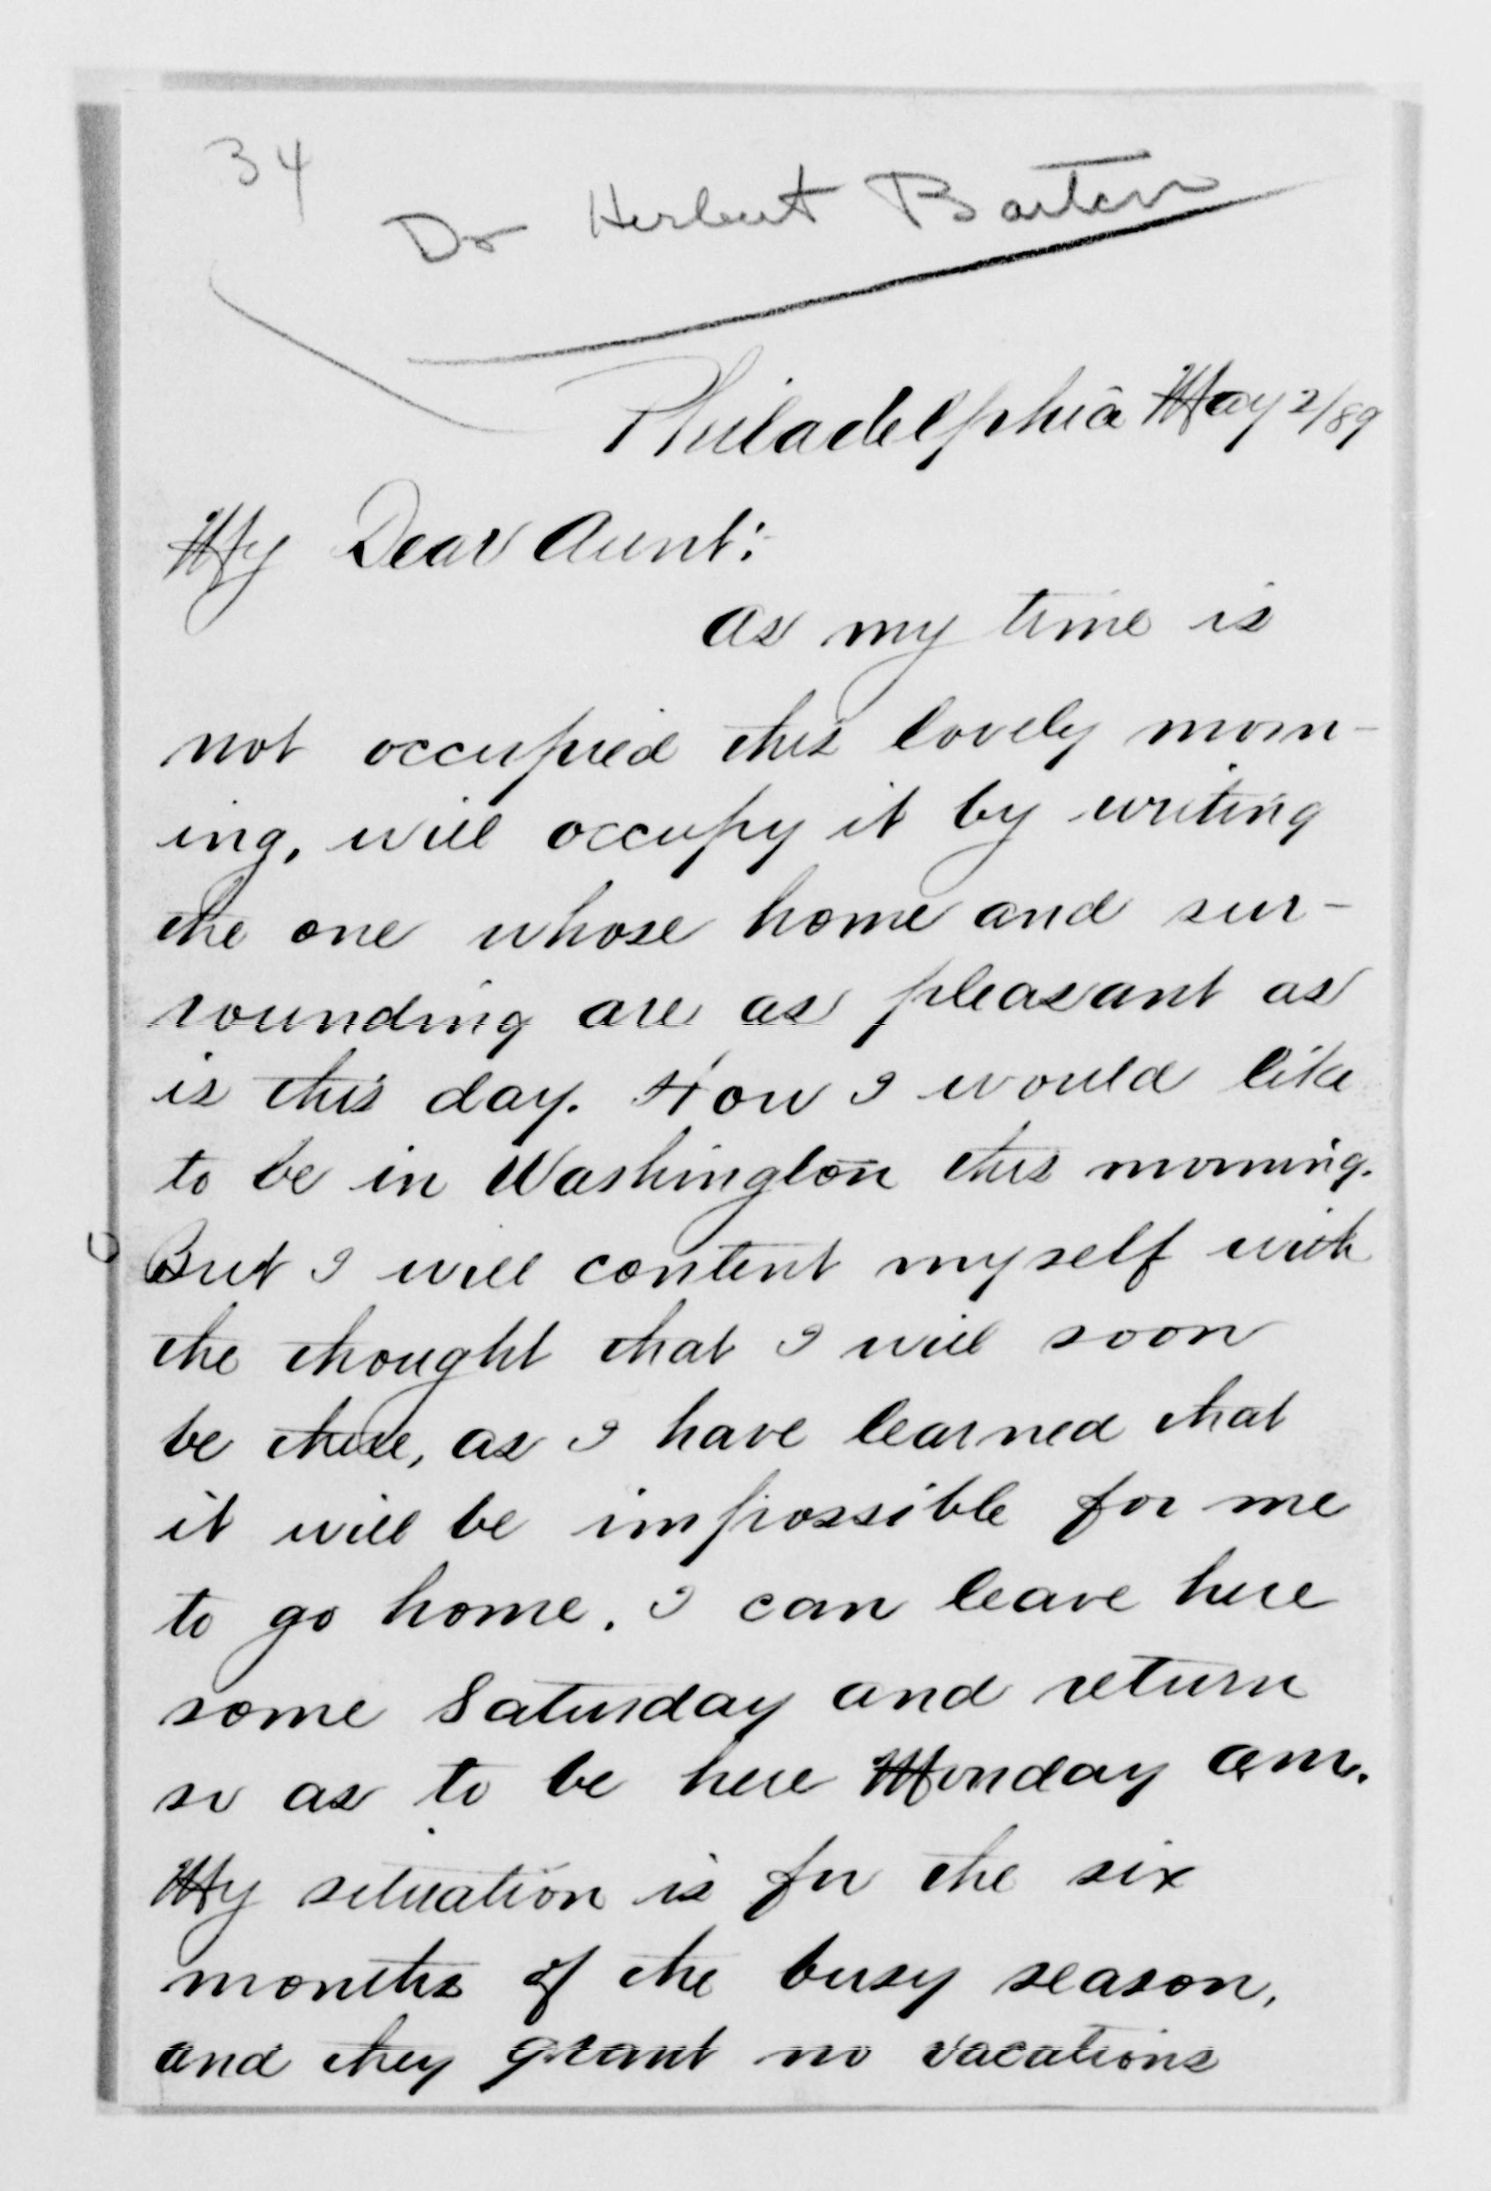 34
Dr Herbert Barton
Philadelphia May 2/89
My Dear Aunt:
As my time is
not occupied this lovely morn-
ing, will occupy it by writing
the one whose home and sur-
rounding are as pleasant as
is this day. How I would like
to be in Washington this morning.
But I will content myself with
the thought that I will soon
be there, as I have learned that
it will be impossible for me
to go home. I can leave here
some Saturday and return
so as to be here Monday am.
My situation is for the six
months of the busy season,
and they grant no vacations